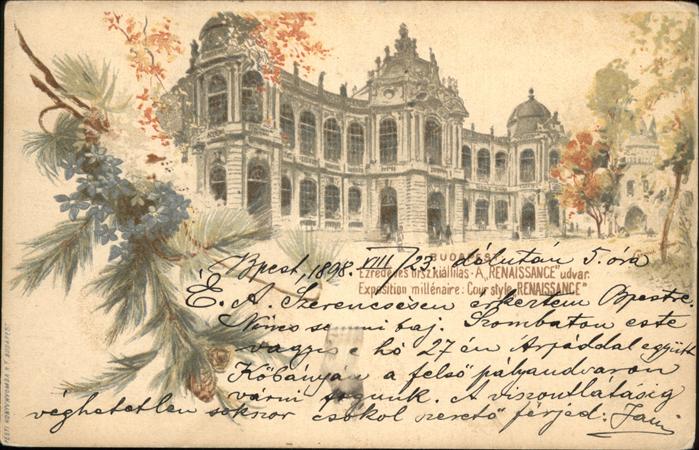 BUDAPEST
Bpest, 1898. VIII/23 délután 5. óra
Ezredéves orsz. kiállitás - A „RENAISSANCE" udvar.
Exposition millénaire: Cour style „RENAISSANCE"
É. A. Szerencsésen érkeztem Bpestre.
Nincs semmi baj. Szombaton este
vagyis e hó 27 én Árpáddal együtt
Kőbányán a felső pályaudvaron
várni fogunk. A viszontlátásig
véghetetlen sokszor csókol szerető férjed: